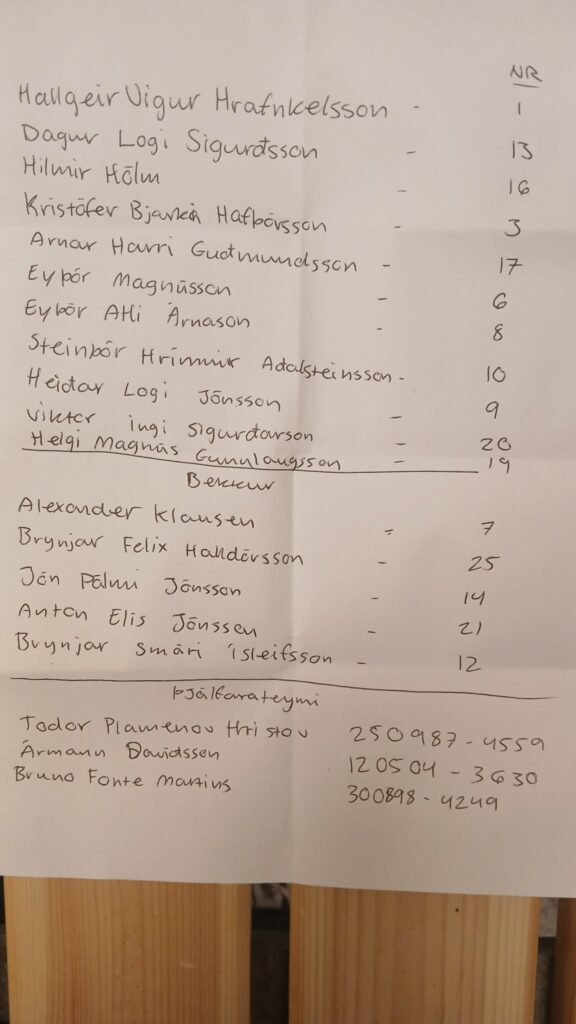 NR
Hallgeir Vigur Hrafnkelsson - 1
Dagur Logi Sigurðsson - 13
Hilmir Hólm - 16
Kristófer Bjarki Hafþórsson - 3
Arnar Harri Guðmundsson - 17
Eyþór Magnússon - 6
Eyþór Atli Árnason - 8
Steinþór Hrímnir Aðalsteinsson - 10
Heiðar Logi Jónsson - 9
Viktor ingi Sigurðarson - 20
Helgi Magnús Gunnlaugsson - 19
Bekkur
Alexander Klausen - 7
Brynjar Felix Halldórsson - 25
Jón Pálmi Jónsson - 14
Anton Elis Jónsson - 21
Brynjar Smári ísleifsson - 12
Þjálfarateymi
Todor Plamenov Hristov 250987-4559
Ármann Davidsson 120504-3630
Bruno Fonte Martins 300898-4249